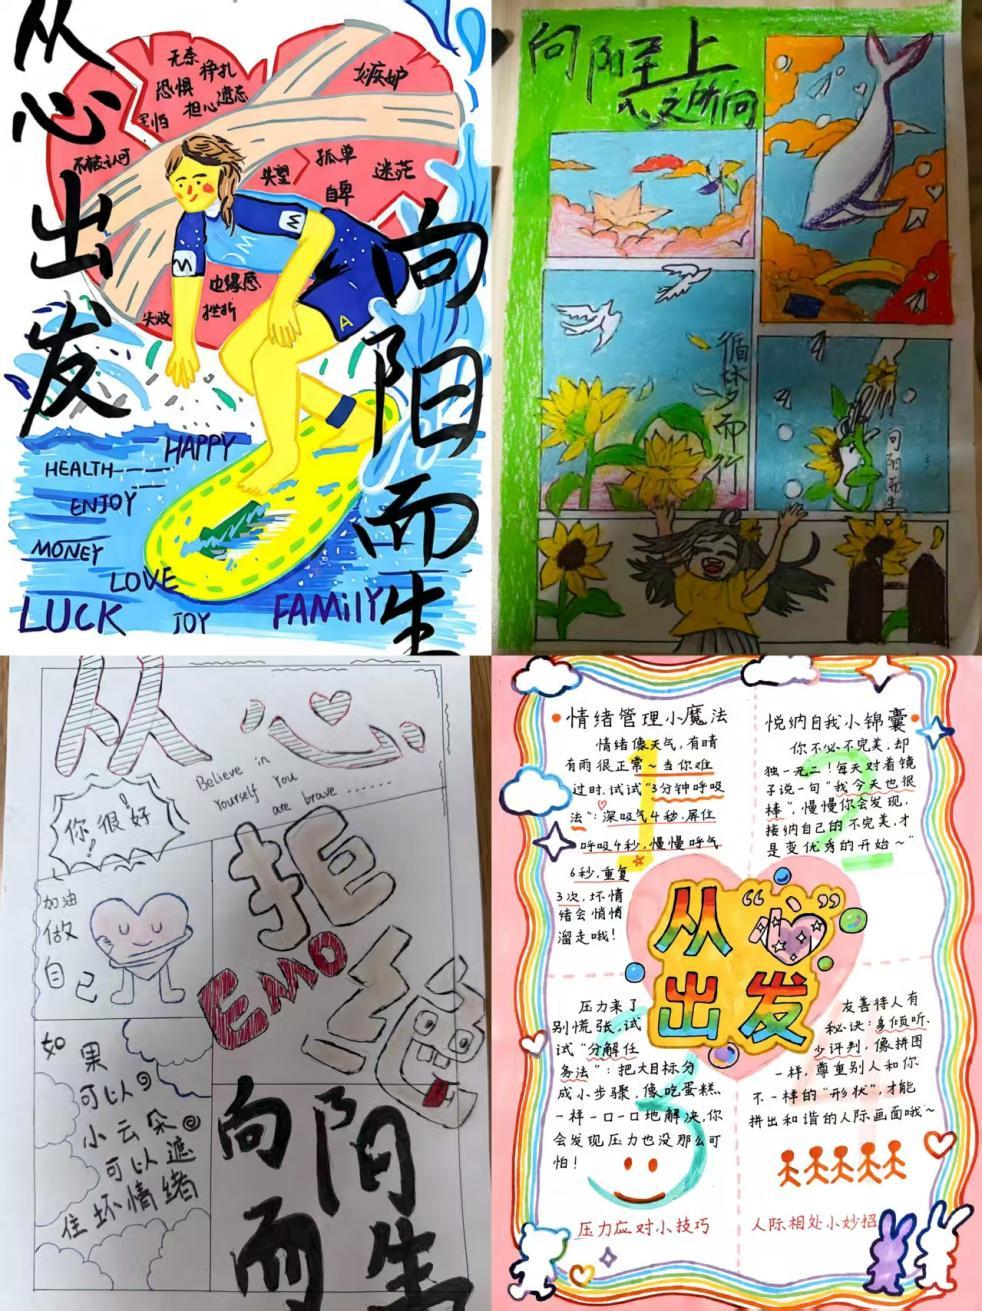 从心出发
向阳而生
无奈 挣扎
恐惧
害怕 担心 遗忘
嫉妒
不被认可
失望
孤单
迷茫
自卑
边缘感
失败
挫折
HAPPY
HEALTH
ENJOY
MONEY
LOVE
LUCK
JOY
FAMiLY
向阳至上
心之所向
循梦而行
向阳而生
从心
Believe in
Yourself You
are brave ......
你很好
加油
做
自己
拒绝
EMO
如果
可以
小云朵
可以遮
住坏情绪
向阳
而生
情绪管理小魔法
情绪像天气，有晴
有雨很正常~当你难
过时，试试“3分钟呼吸
法”：深吸气4秒，屏住
呼吸4秒，慢慢呼气
6秒，重复
3次，坏情
绪会悄悄
溜走哦！
悦纳自我小锦囊
你不必不完美，却
独一无二！每天对着镜
子说一句“我今天也很
棒”，慢慢你会发现，
接纳自己的不完美，才
是变优秀的开始~
从“心”
出发
压力来了
别慌张，试
试“分解任
务法”：把大目标分
成小步骤，像吃蛋糕
一样一口一口地解决，你
会发现压力也没那么可
怕！
压力应对小技巧
友善待人有
秘诀：多倾听、
少评判，像拼图
一样，尊重别人和你
不一样的“形状”，才能
拼出和谐的人际画面哦~
人际相处小妙招